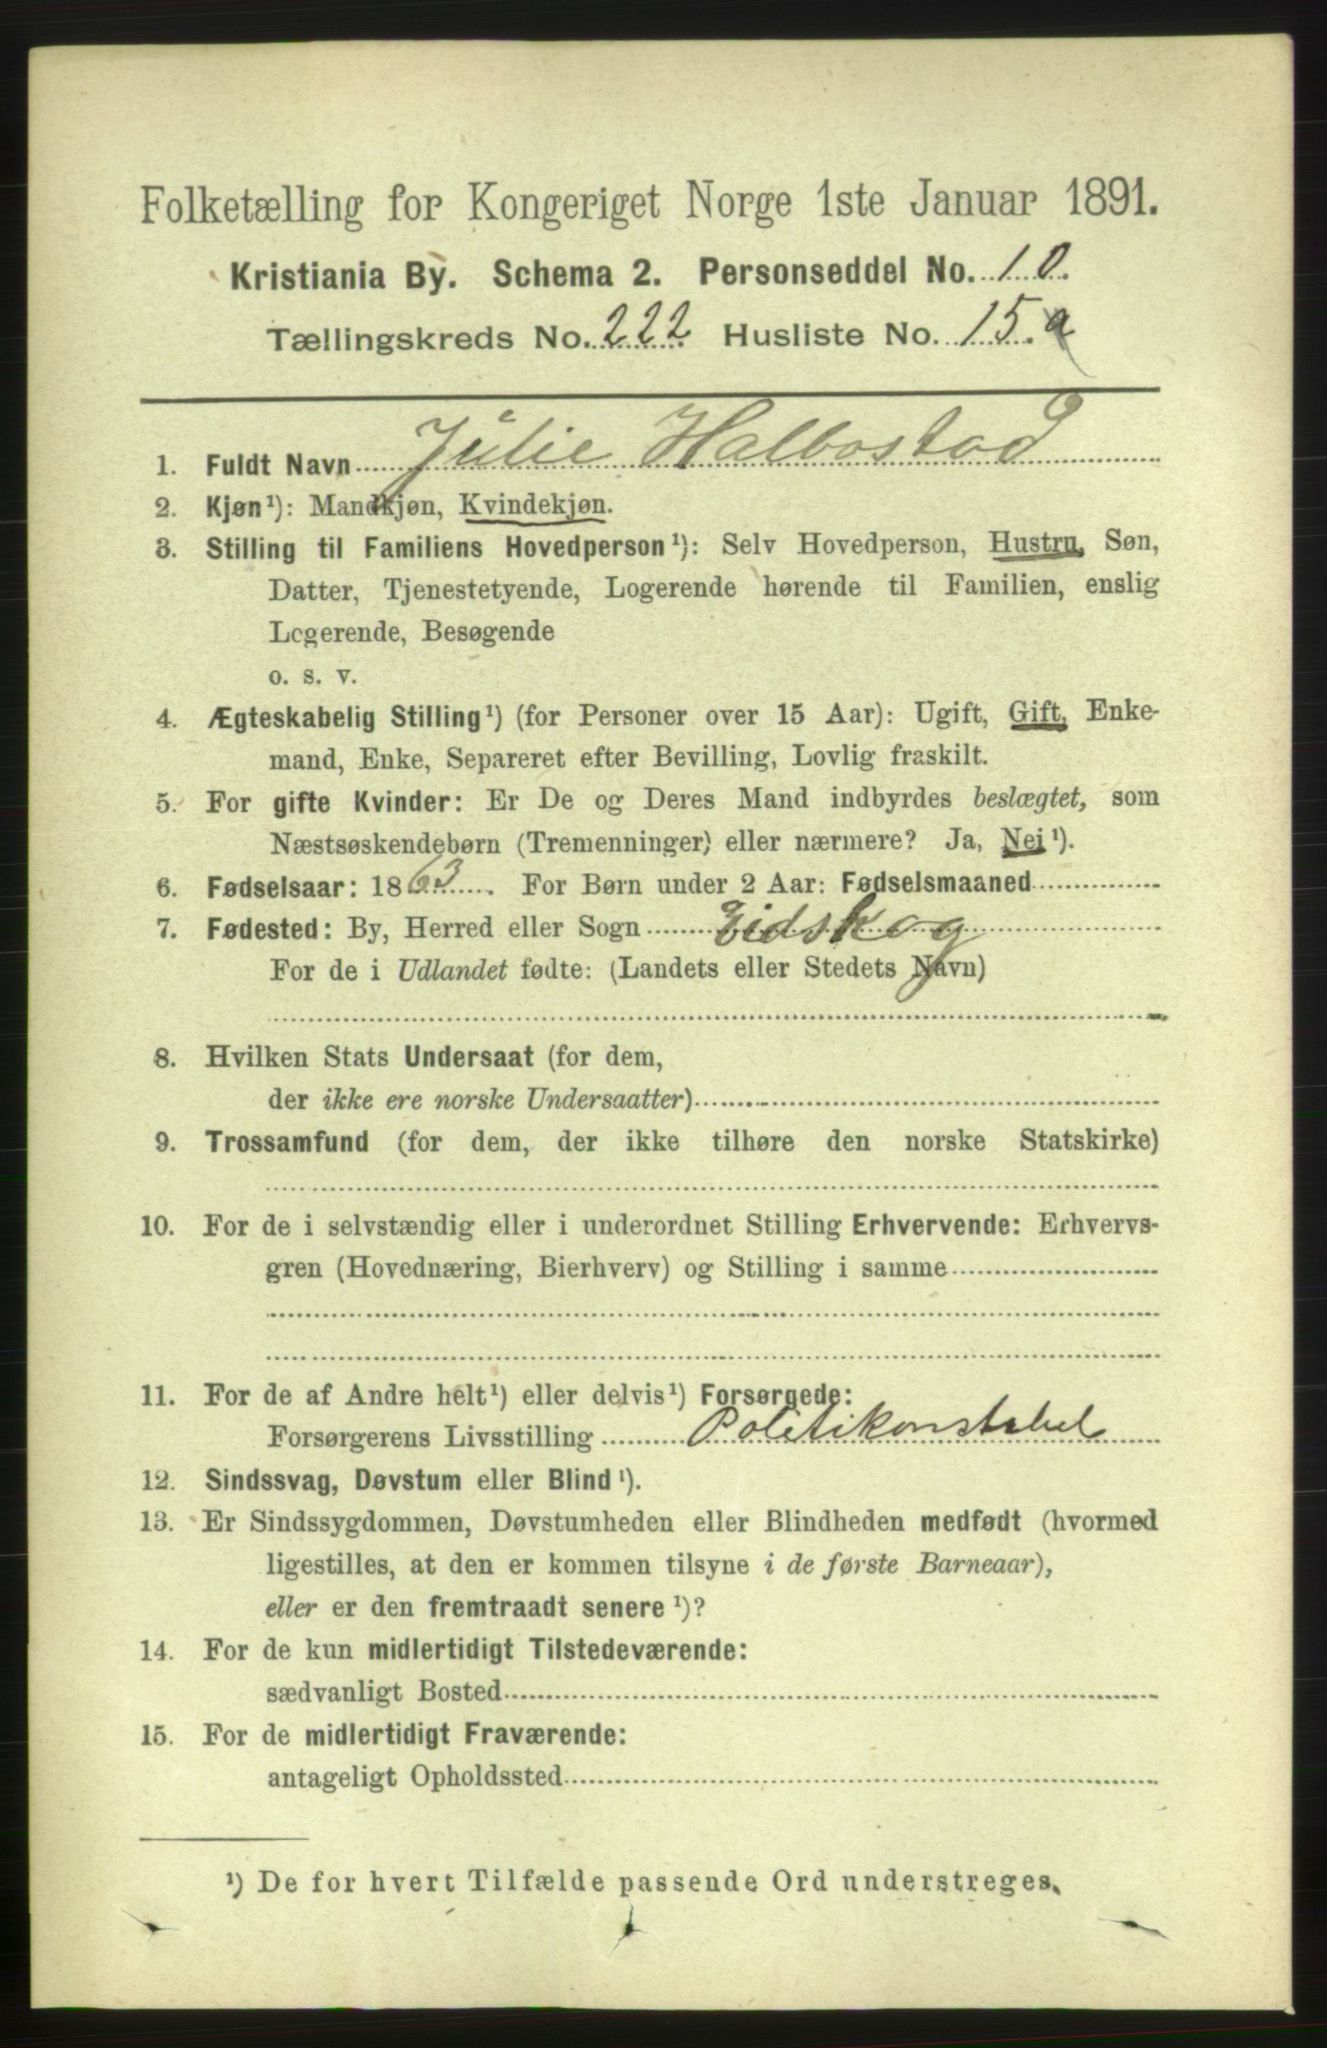 Folketælling for Kongeriget Norge 1ste Januar 1891.
Kristiania By. Schema 2. Personseddel No. 10.
Tællingskreds No. 222 Husliste No. 15.a
1. Fuldt Navn Julie Halbostad
2. Kjøn¹): Mandkjøn, Kvindekjøn.
3. Stilling til Familiens Hovedperson¹): Selv Hovedperson, Hustru, Søn,
Datter, Tjenestetyende, Logerende hørende til Familien, enslig
Logerende, Besøgende
o. s. v.
4. Ægteskabelig Stilling¹) (for Personer over 15 Aar): Ugift, Gift, Enke-
mand, Enke, Separeret efter Bevilling, Lovlig fraskilt.
5. For gifte Kvinder: Er De og Deres Mand indbyrdes beslægtet, som
Næstsøskendebørn (Tremenninger) eller nærmere? Ja, Nei¹).
6. Fødselsaar: 1863. For Børn under 2 Aar: Fødselsmaaned
7. Fødested: By, Herred eller Sogn Eidskog
For de i Udlandet fødte: (Landets eller Stedets Navn)
8. Hvilken Stats Undersaat (for dem,
der ikke ere norske Undersaatter)
9. Trossamfund (for dem, der ikke tilhøre den norske Statskirke)
10. For de i selvstændig eller i underordnet Stilling Erhvervende: Erhvervs-
gren (Hovednæring, Bierhverv) og Stilling i samme
11. For de af Andre helt¹) eller delvis¹) Forsørgede:
Forsørgerens Livsstilling Politikonstabel
12. Sindssvag, Døvstum eller Blind¹).
13. Er Sindssygdommen, Døvstumheden eller Blindheden medfødt (hvormed
ligestilles, at den er kommen tilsyne i de første Barneaar),
eller er den fremtraadt senere¹)?
14. For de kun midlertidigt Tilstedeværende:
sædvanligt Bosted
15. For de midlertidigt Fraværende:
antageligt Opholdssted
¹) De for hvert Tilfælde passende Ord understreges.